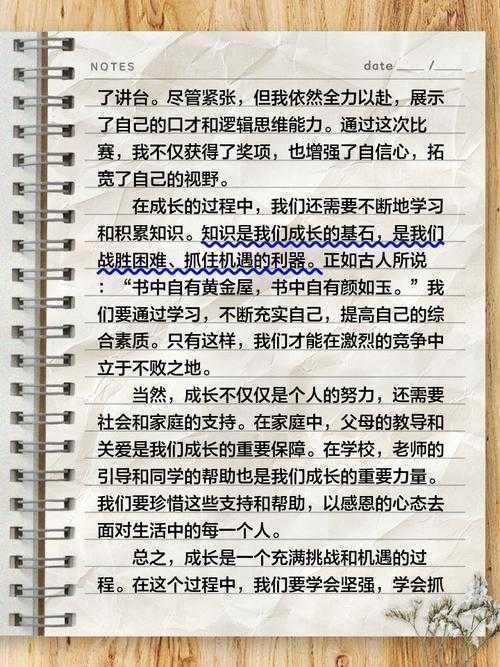 NOTES
date____ /____
了讲台。尽管紧张，但我依然全力以赴，展示
了自己的口才和逻辑思维能力。通过这次比
赛，我不仅获得了奖项，也增强了自信心，拓
宽了自己的视野。
在成长的过程中，我们还需要不断地学习
和积累知识。知识是我们成长的基石，是我们
战胜困难、抓住机遇的利器。正如古人所说
：“书中自有黄金屋，书中自有颜如玉。”我
们要通过学习，不断充实自己，提高自己的综
合素质。只有这样，我们才能在激烈的竞争中
立于不败之地。
当然，成长不仅仅是个人的努力，还需要
社会和家庭的支持。在家庭中，父母的教导和
关爱是我们成长的重要保障。在学校，老师的
引导和同学的帮助也是我们成长的重要力量。
我们要珍惜这些支持和帮助，以感恩的心态去
面对生活中的每一个人。
总之，成长是一个充满挑战和机遇的过
程。在这个过程中，我们要学会坚强，学会抓